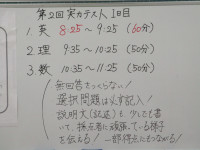 第2回実力テスト 1日目
1. 英 8:25 ～ 9:25 (60分)
2. 理 9:35 ～ 10:25 (50分)
3. 数 10:35 ～ 11:25 (50分)
無回答をつくらない!
選択問題は必ず記入!
説明文(記述)も少しでも書
いて、採点者に頑張っている様子
を伝える! 一部得点にもつながる!